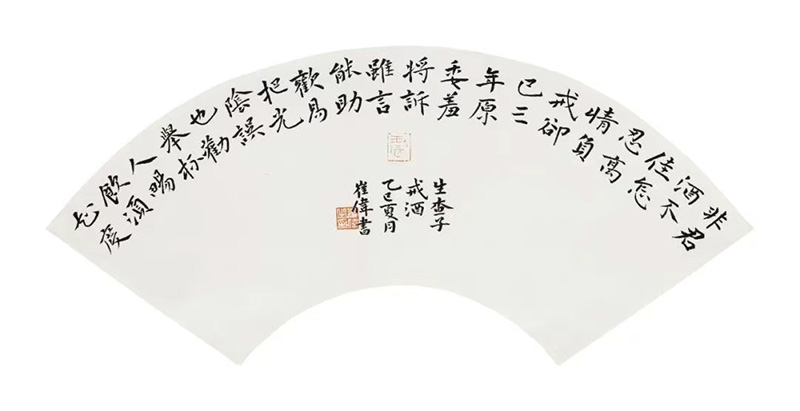 非君
酒不
佳怎
忍高
情負
戒卻
已三
年原
委羞
將訴
雖言
能助
歡易
把光
陰誤
也勸
舉杯
人暢
飲須
知度
生查子
戒酒
乙巳夏月
崔偉書